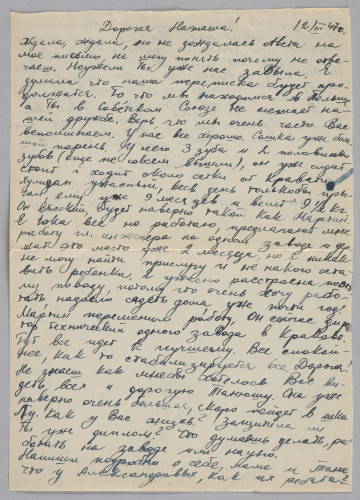 Дорогая Наташа! 12/III-47г.
Ждала, ждала, но не дождалась ответа на
мое письмо не могу понять почему не отве-
чаеш. Неужели Ты уже нас забыла. Я
думала что наша переписка будет про-
должатся. То что мы находимся в Польше
а Ты в Советском Союзе не мешает на-
шей дружбе. Верь что мы очень часто Вас
вспоминаем. У нас все хорошо. уже боль-
шой парень. У него 3 зуба и 2 половины
зубов (еще не совсем вышли), он уже сидит
стоит и ходит около сетки от кровати.
ужасный, весь день только бы
ему уже 9 месяцев и весит 9½ кг.
Он высокий будет наверно такой как Мартин.
Я пока все не работаю, предлагают мне
работу гл. инженера на одной заводе и дер-
жат это место уже 2 месяца, но я никак
не могу найти прислугу и не накого оста-
вить ребенка. Я ужасно расстроена по э-
тому поводу, потому что очень хочу рабо-
тать надоело сидеть дома уже почти год.
Мартин переменил работу, Он сейчас дирек-
тор технический одного завода в Кракове.
Тут все идет к лучшему. Все спокой-
нее, как то стабилизируется все. Дорогая!
Не знаеш как мне бы хотелось Вас ви-
деть всех и дорогую Танюшу. Она уже
наверно очень большая, скоро пойдет в шко-
лу. Как у Вас жизнь? Защитила ли
Ты уже диплом? Что думаешь делать, ра-
ботать на заводе или научно.
Напиши подробно о себе, маме и Тане
что у Александравых, как их ребята?